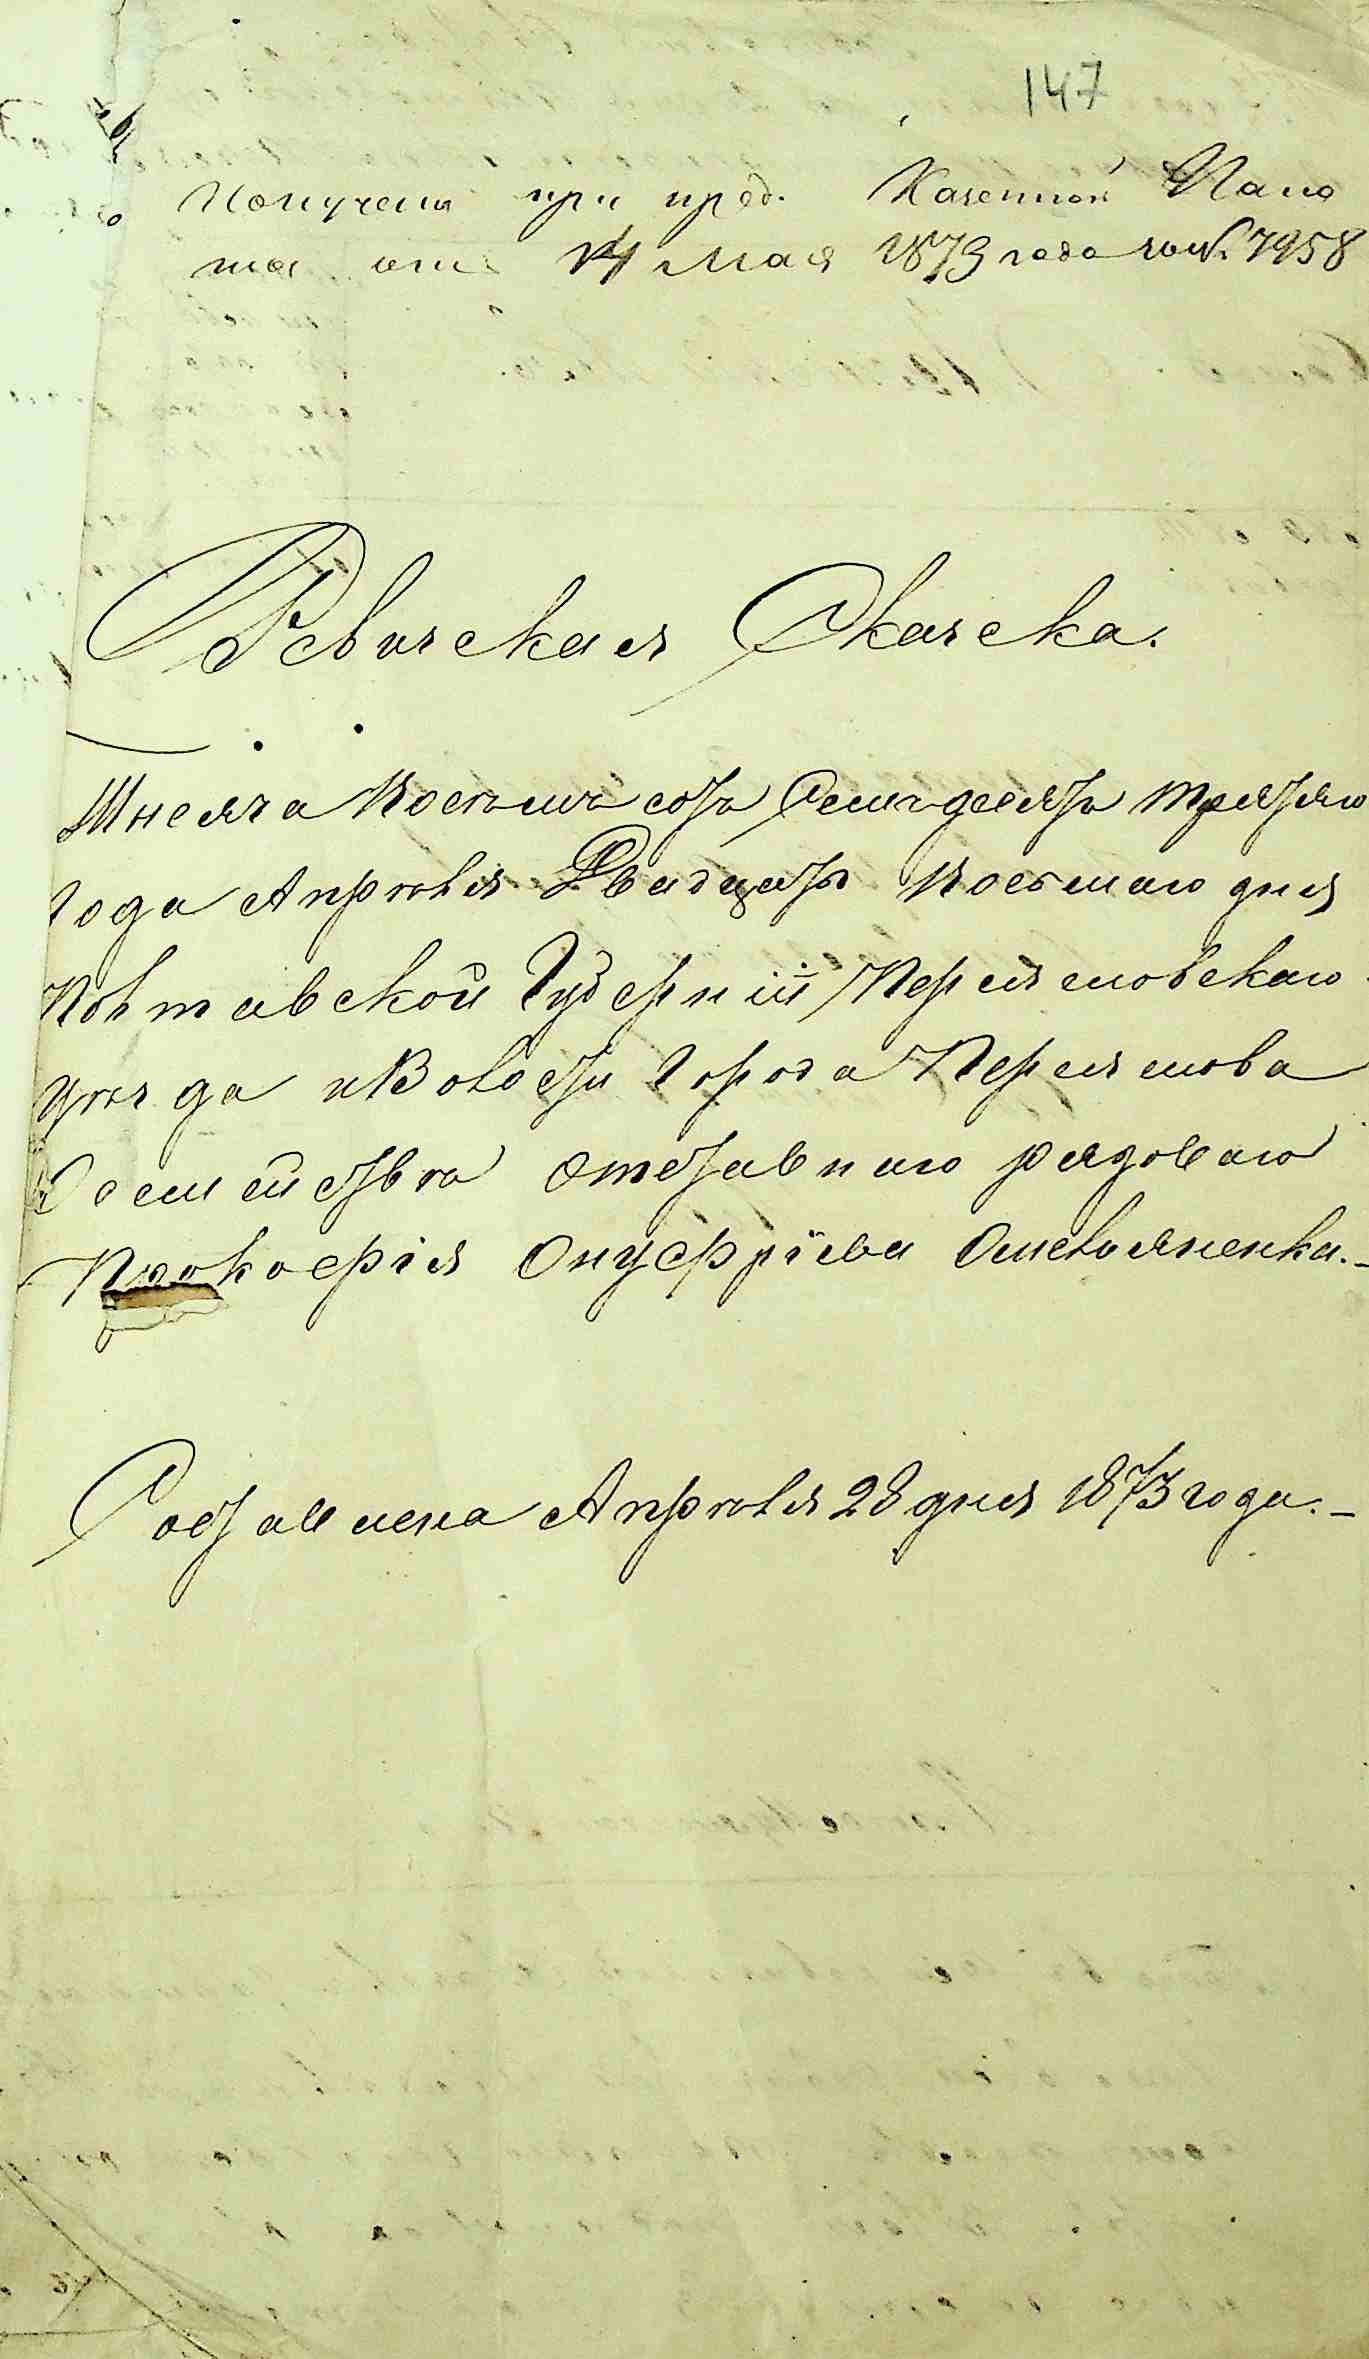 147
Получена при пред. Казенной Пала
ты отъ 14 Мая 1873 года за № 7958
Ревизская Сказка.
Тысяча Восемь сотъ Семьдесятъ третяго
года Апрѣля Двадцать Восьмаго дня
Полтавской Губерніи Переяславскаго
уѣзда и Волости города Переяслова
О семействѣ отставнаго рядоваго
Прокофія Онуфріева Омельяненка.–
Составлена Апрѣля 28 дня 1873 года.–